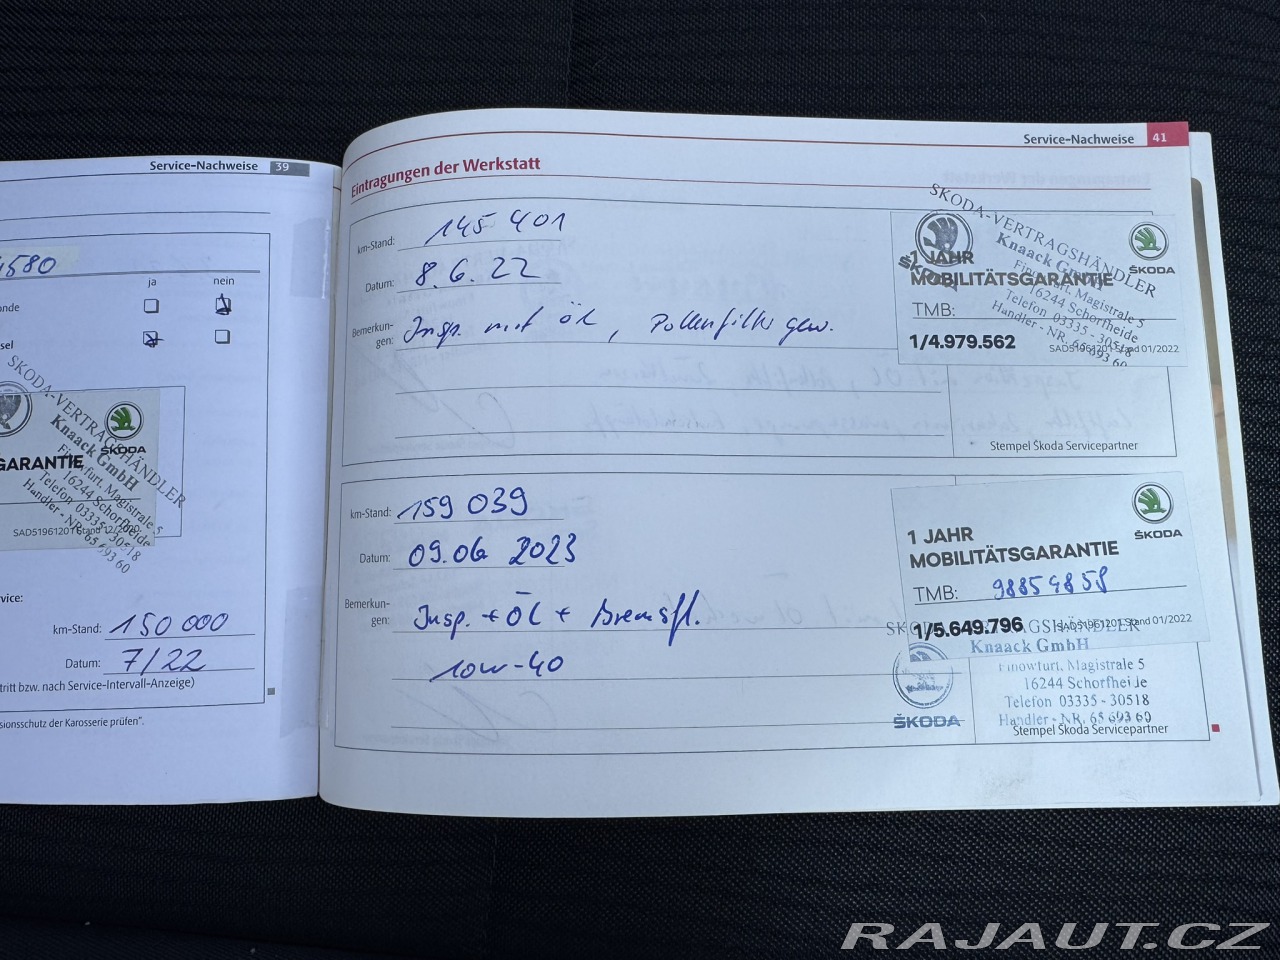 Service-Nachweise 39
4580
ja nein
nde
sel
SKODA-VERTRAGSHÄNDLER
Knaack GmbH
ŠKODA
GARANTIE
Finowfurt, Magistrale 5
16244 Schorfheide
Telefon 03335 - 30518
Händler - NR. 65 693 60
SAD5196120 Stand 12/20
vice:
km-Stand: 150 000
Datum: 7/22
tritt bzw. nach Service-Intervall-Anzeige)
sionsschutz der Karosserie prüfen".
Service-Nachweise 41
Eintragungen der Werkstatt
km-Stand: 145 401
Datum: 8.6.22
Bemerkun-
gen: Insp. mit Öl, Pollenfilter gew.
SKODA-VERTRAGSHÄNDLER
Knaack GmbH
Finowfurt, Magistrale 5
16244 Schorfheide
Telefon 03335 - 30518
Händler - NR. 65 693 60
ŠKODA
1 JAHR
MOBILITÄTSGARANTIE
TMB:
1/4.979.562
SAD5196120 Stand 01/2022
Stempel Škoda Servicepartner
km-Stand: 159 039
Datum: 09.06 2023
Bemerkun-
gen: Insp. + ÖL + Bremsfl.
10W-40
ŠKODA
1 JAHR
MOBILITÄTSGARANTIE
TMB: 98854858
1/5.649.796
SAD5196120 Stand 01/2022
Knaack GmbH
Finowfurt, Magistrale 5
16244 Schorfheide
Telefon 03335 - 30518
Händler - NR. 65 693 60
ŠKODA
Stempel Škoda Servicepartner
RAJAUT.CZ